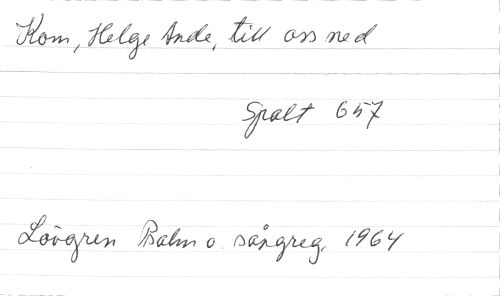 Kom, Helge Ande, till oss ned
Spalt 657
Lövgren Psalm o. sångreg. 1964